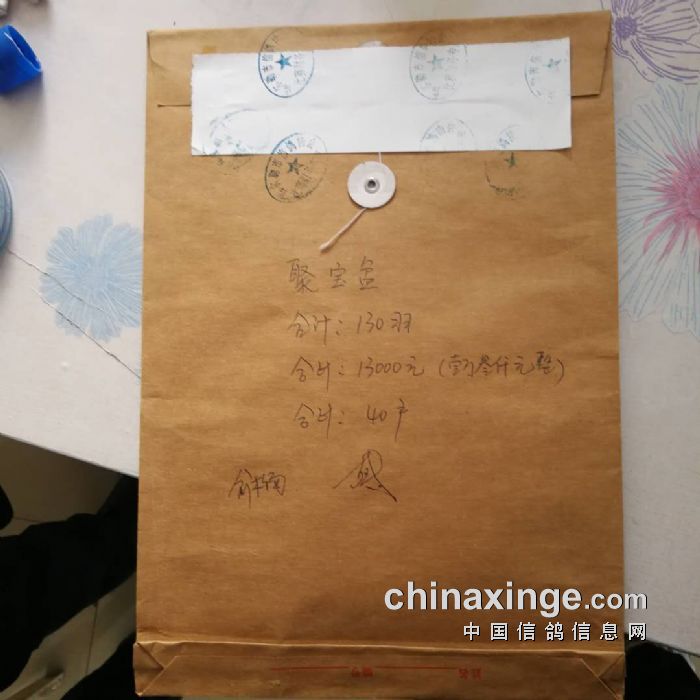 聚宝盆
合计：130羽
合计：13000元（壹万叁仟元整）
合计：40户
chinaxinge.com
中国信鸽信息网